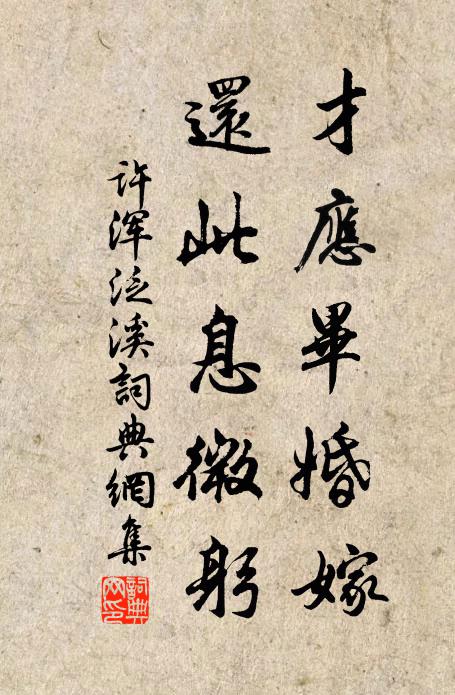 才應畢婚嫁
還此息微躬
許渾泛溪詞典網集
詞典网印